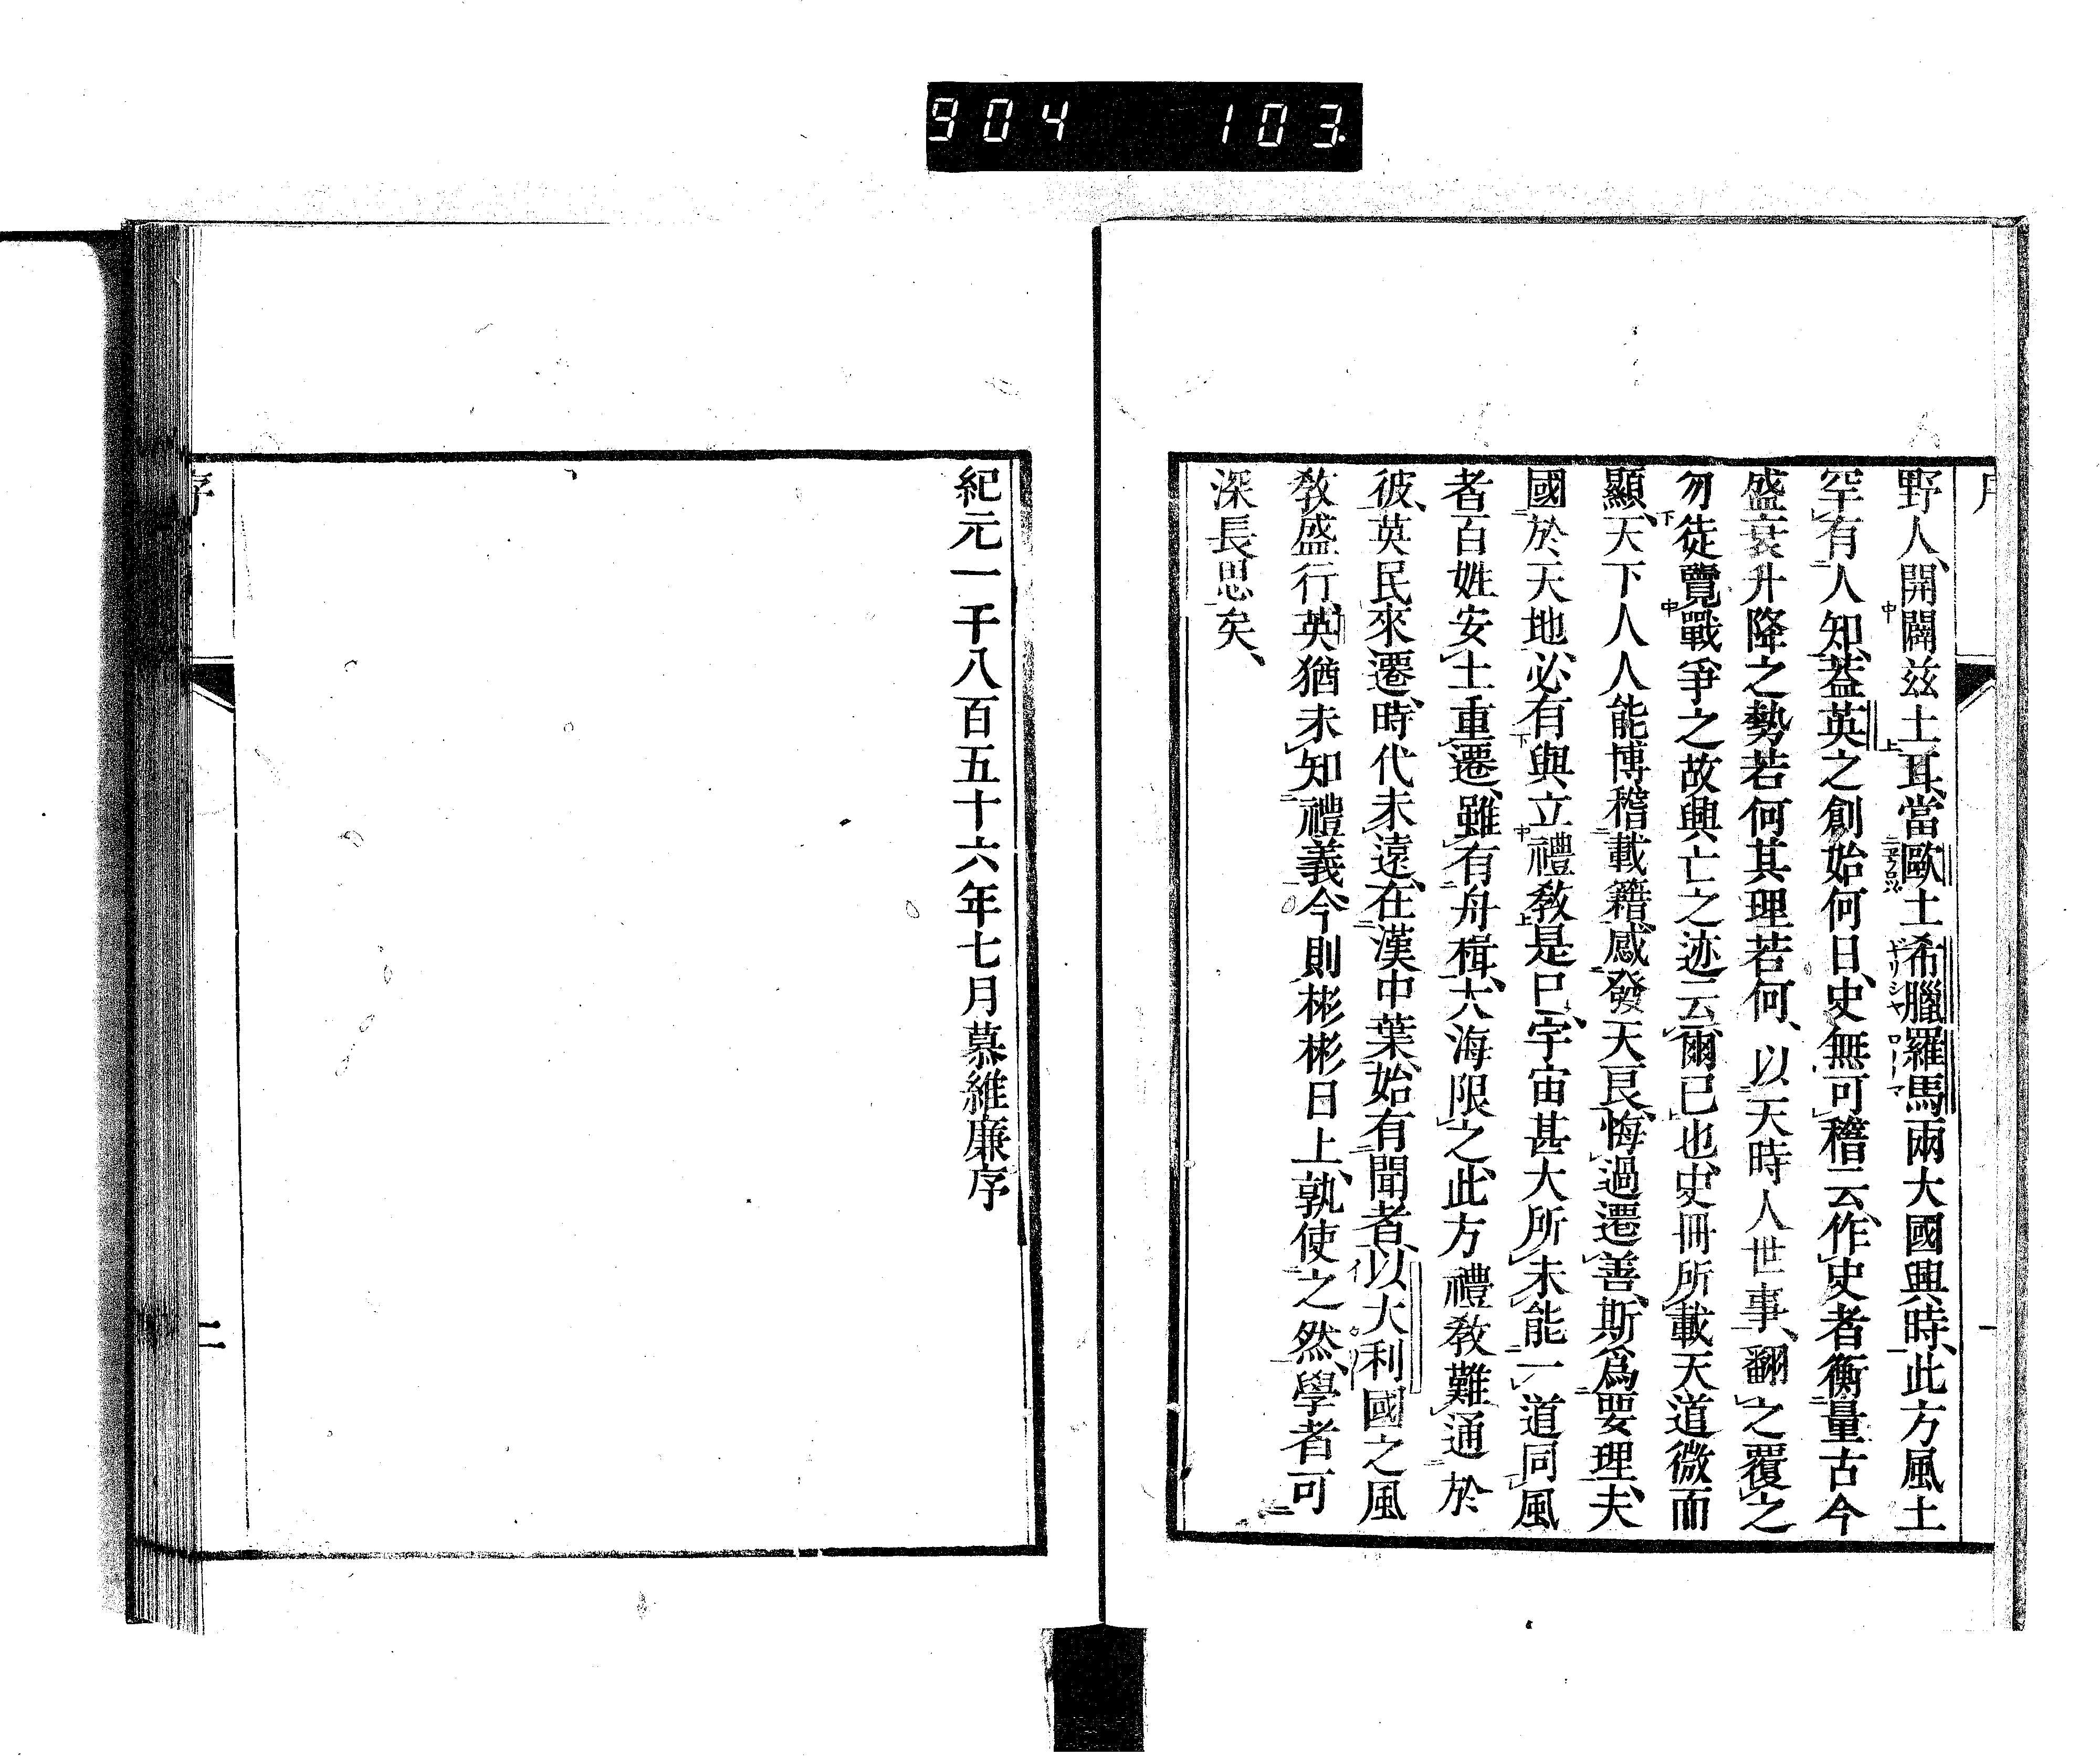 904 103
野人、開闢兹土耳、當歐土希臘羅馬兩大國興時、此方風土
罕有人知、葢英之創始何日、史無可稽云、作史者衡量古今
盛衰升降之勢若何其理若何、以天時人世事、翻之覆之
勿徒覽戰爭之故興亡之迹云爾已也、史冊所載天道微而
顯、天下人人能博稽載籍、感發天良、悔過遷善、斯爲要理、夫
國於天地、必有與立禮敎是巳、宇宙甚大所未能一道同風
者百姓安土重遷、雖有舟楫、大海限之、此方禮敎難通於
彼、英民來遷、時代未遠、在漢中葉、始有聞者、以大利國之風
敎盛行、英猶未知禮義、今則彬彬日上、孰使之然、學者可
深長思矣、
紀元一千八百五十六年七月慕維廉序
序
二